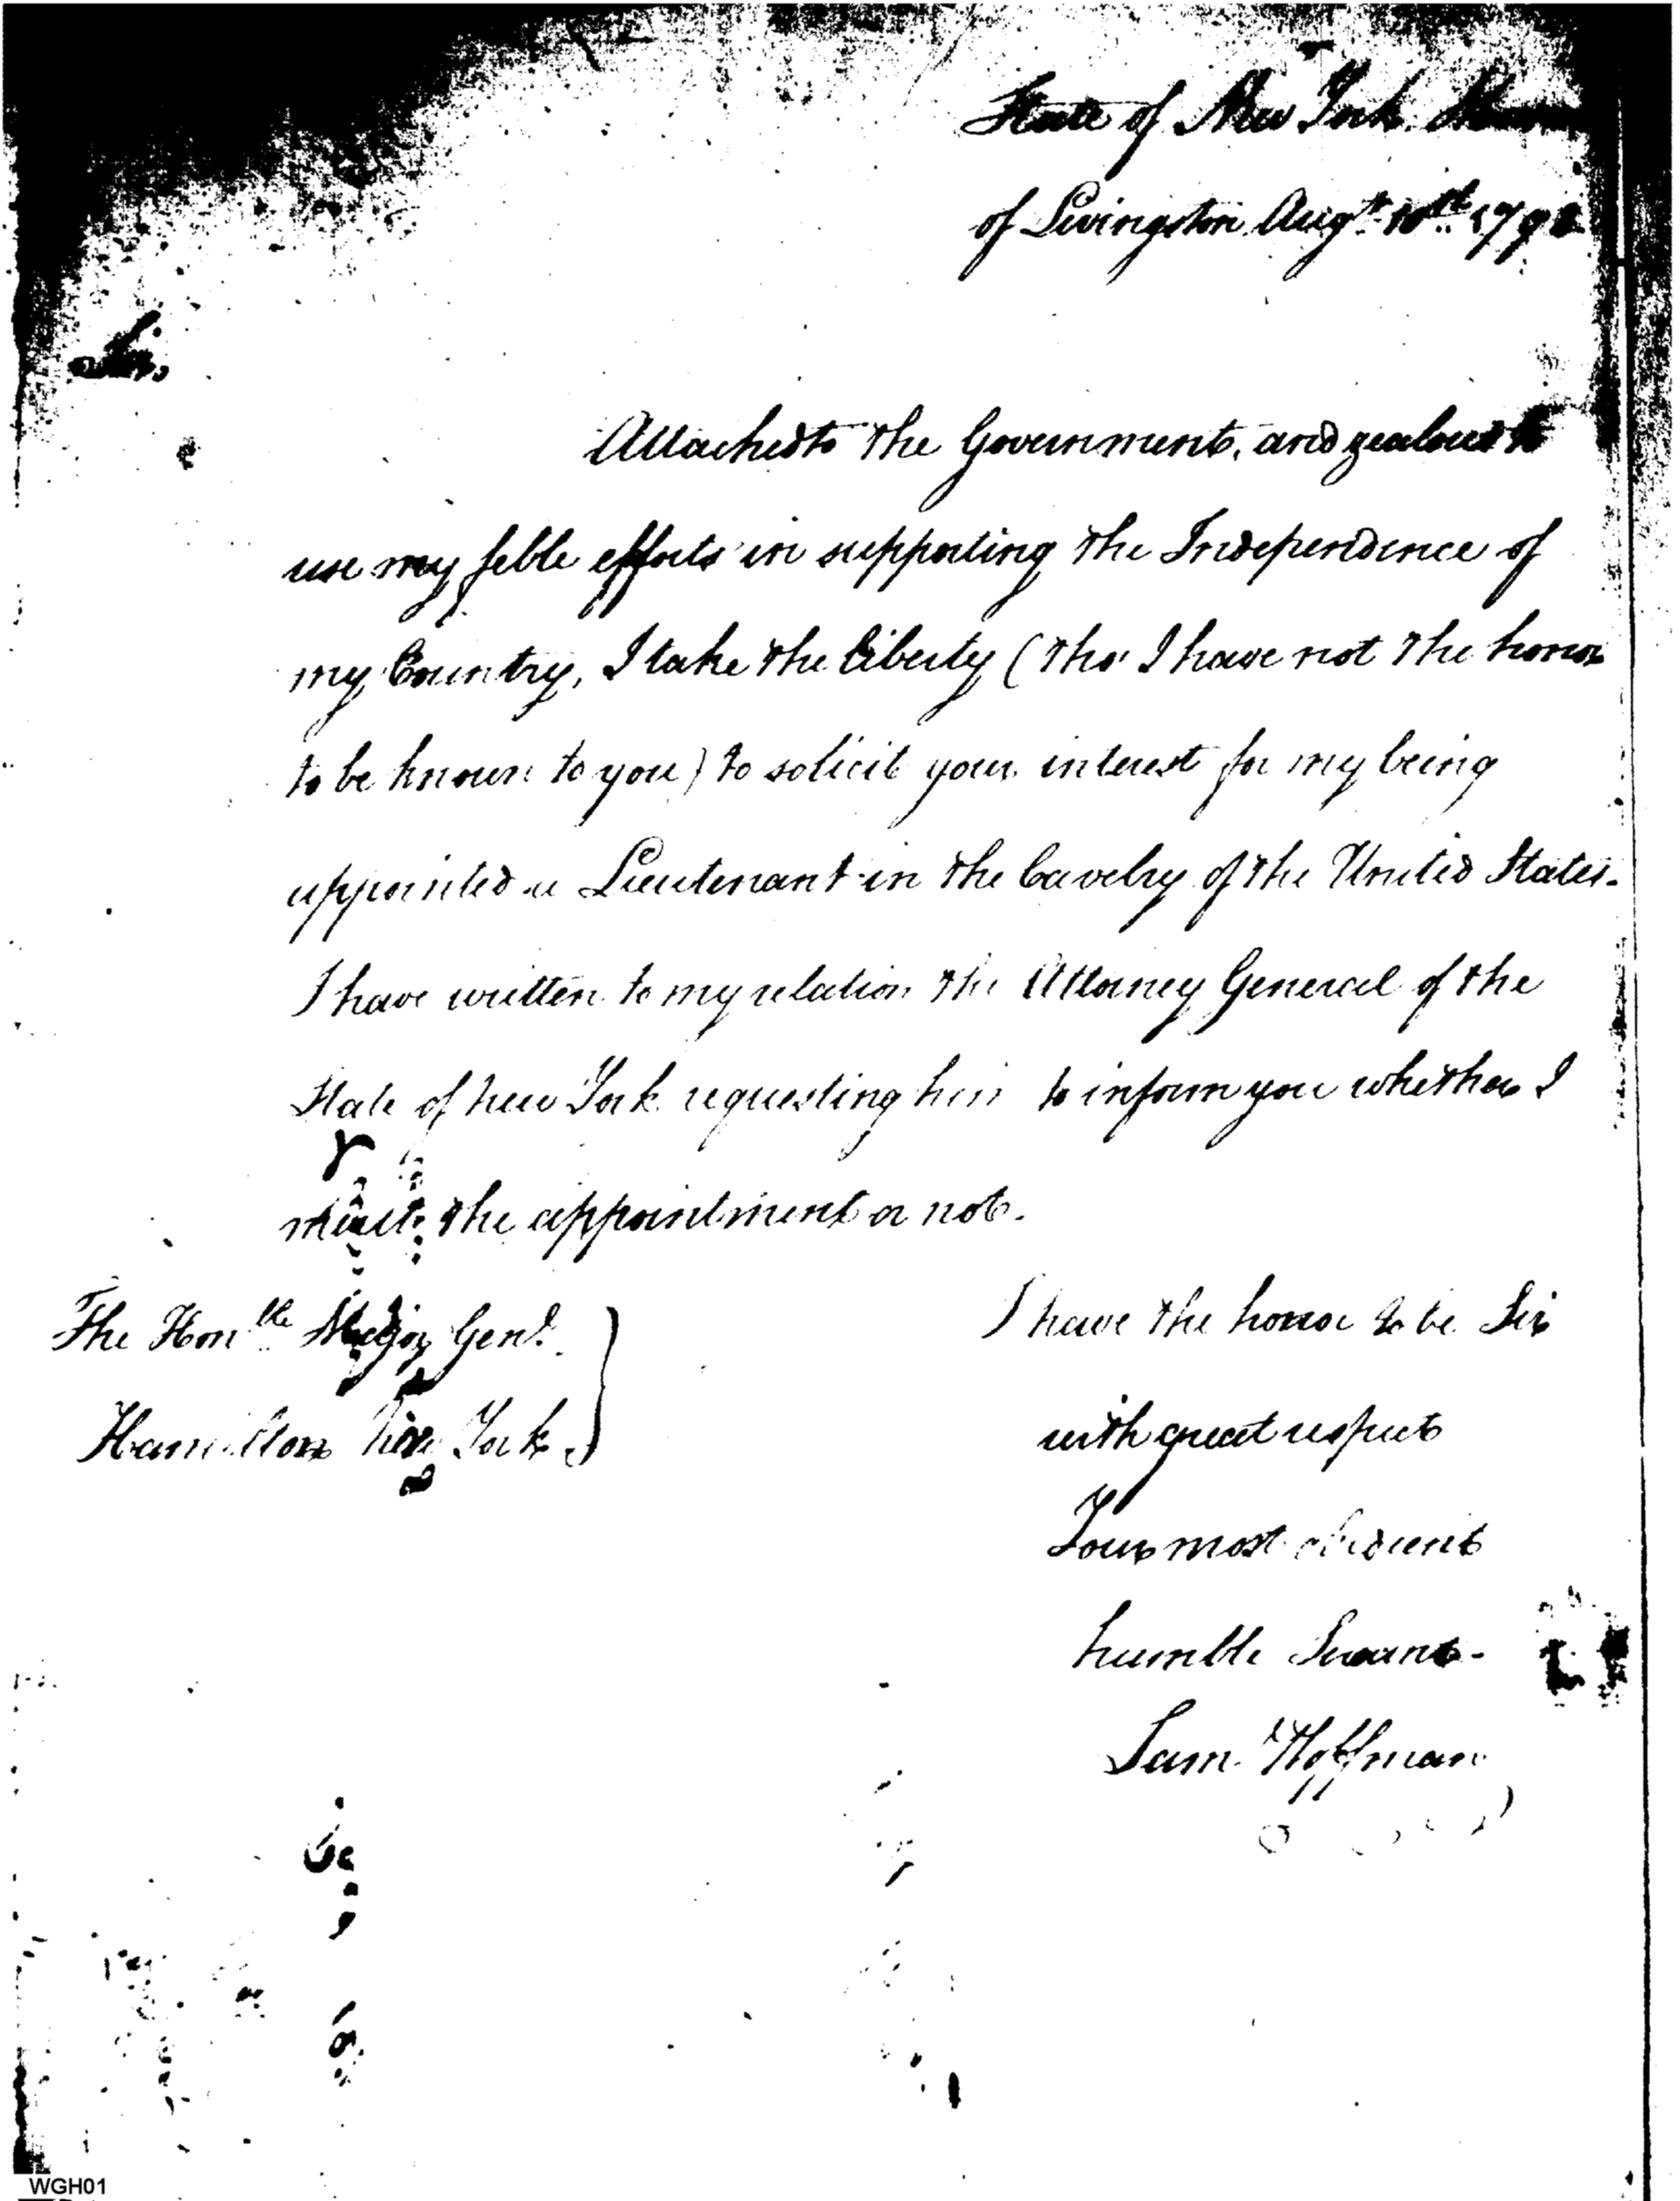 State of New York
of Livingston Augt. 10th. 1798
Sir,
Attached to the Government, and zealous to
use my feble efforts in supporting the Independence of
my Country, I take the liberty (tho' I have not the honor
to be known to you) to solicit your interest for my being
appointed a Lieutenant in the Cavelry of the United States.
I have written to my relation the Attorney General of the
State of New York requesting him to inform you whether I
the appointment or not.
The Honble. Major Genl.
Hamilton New York
I have the honor to be Sir
with great respect
Your most obedient
humble
Sam. Hoffman
WGH01